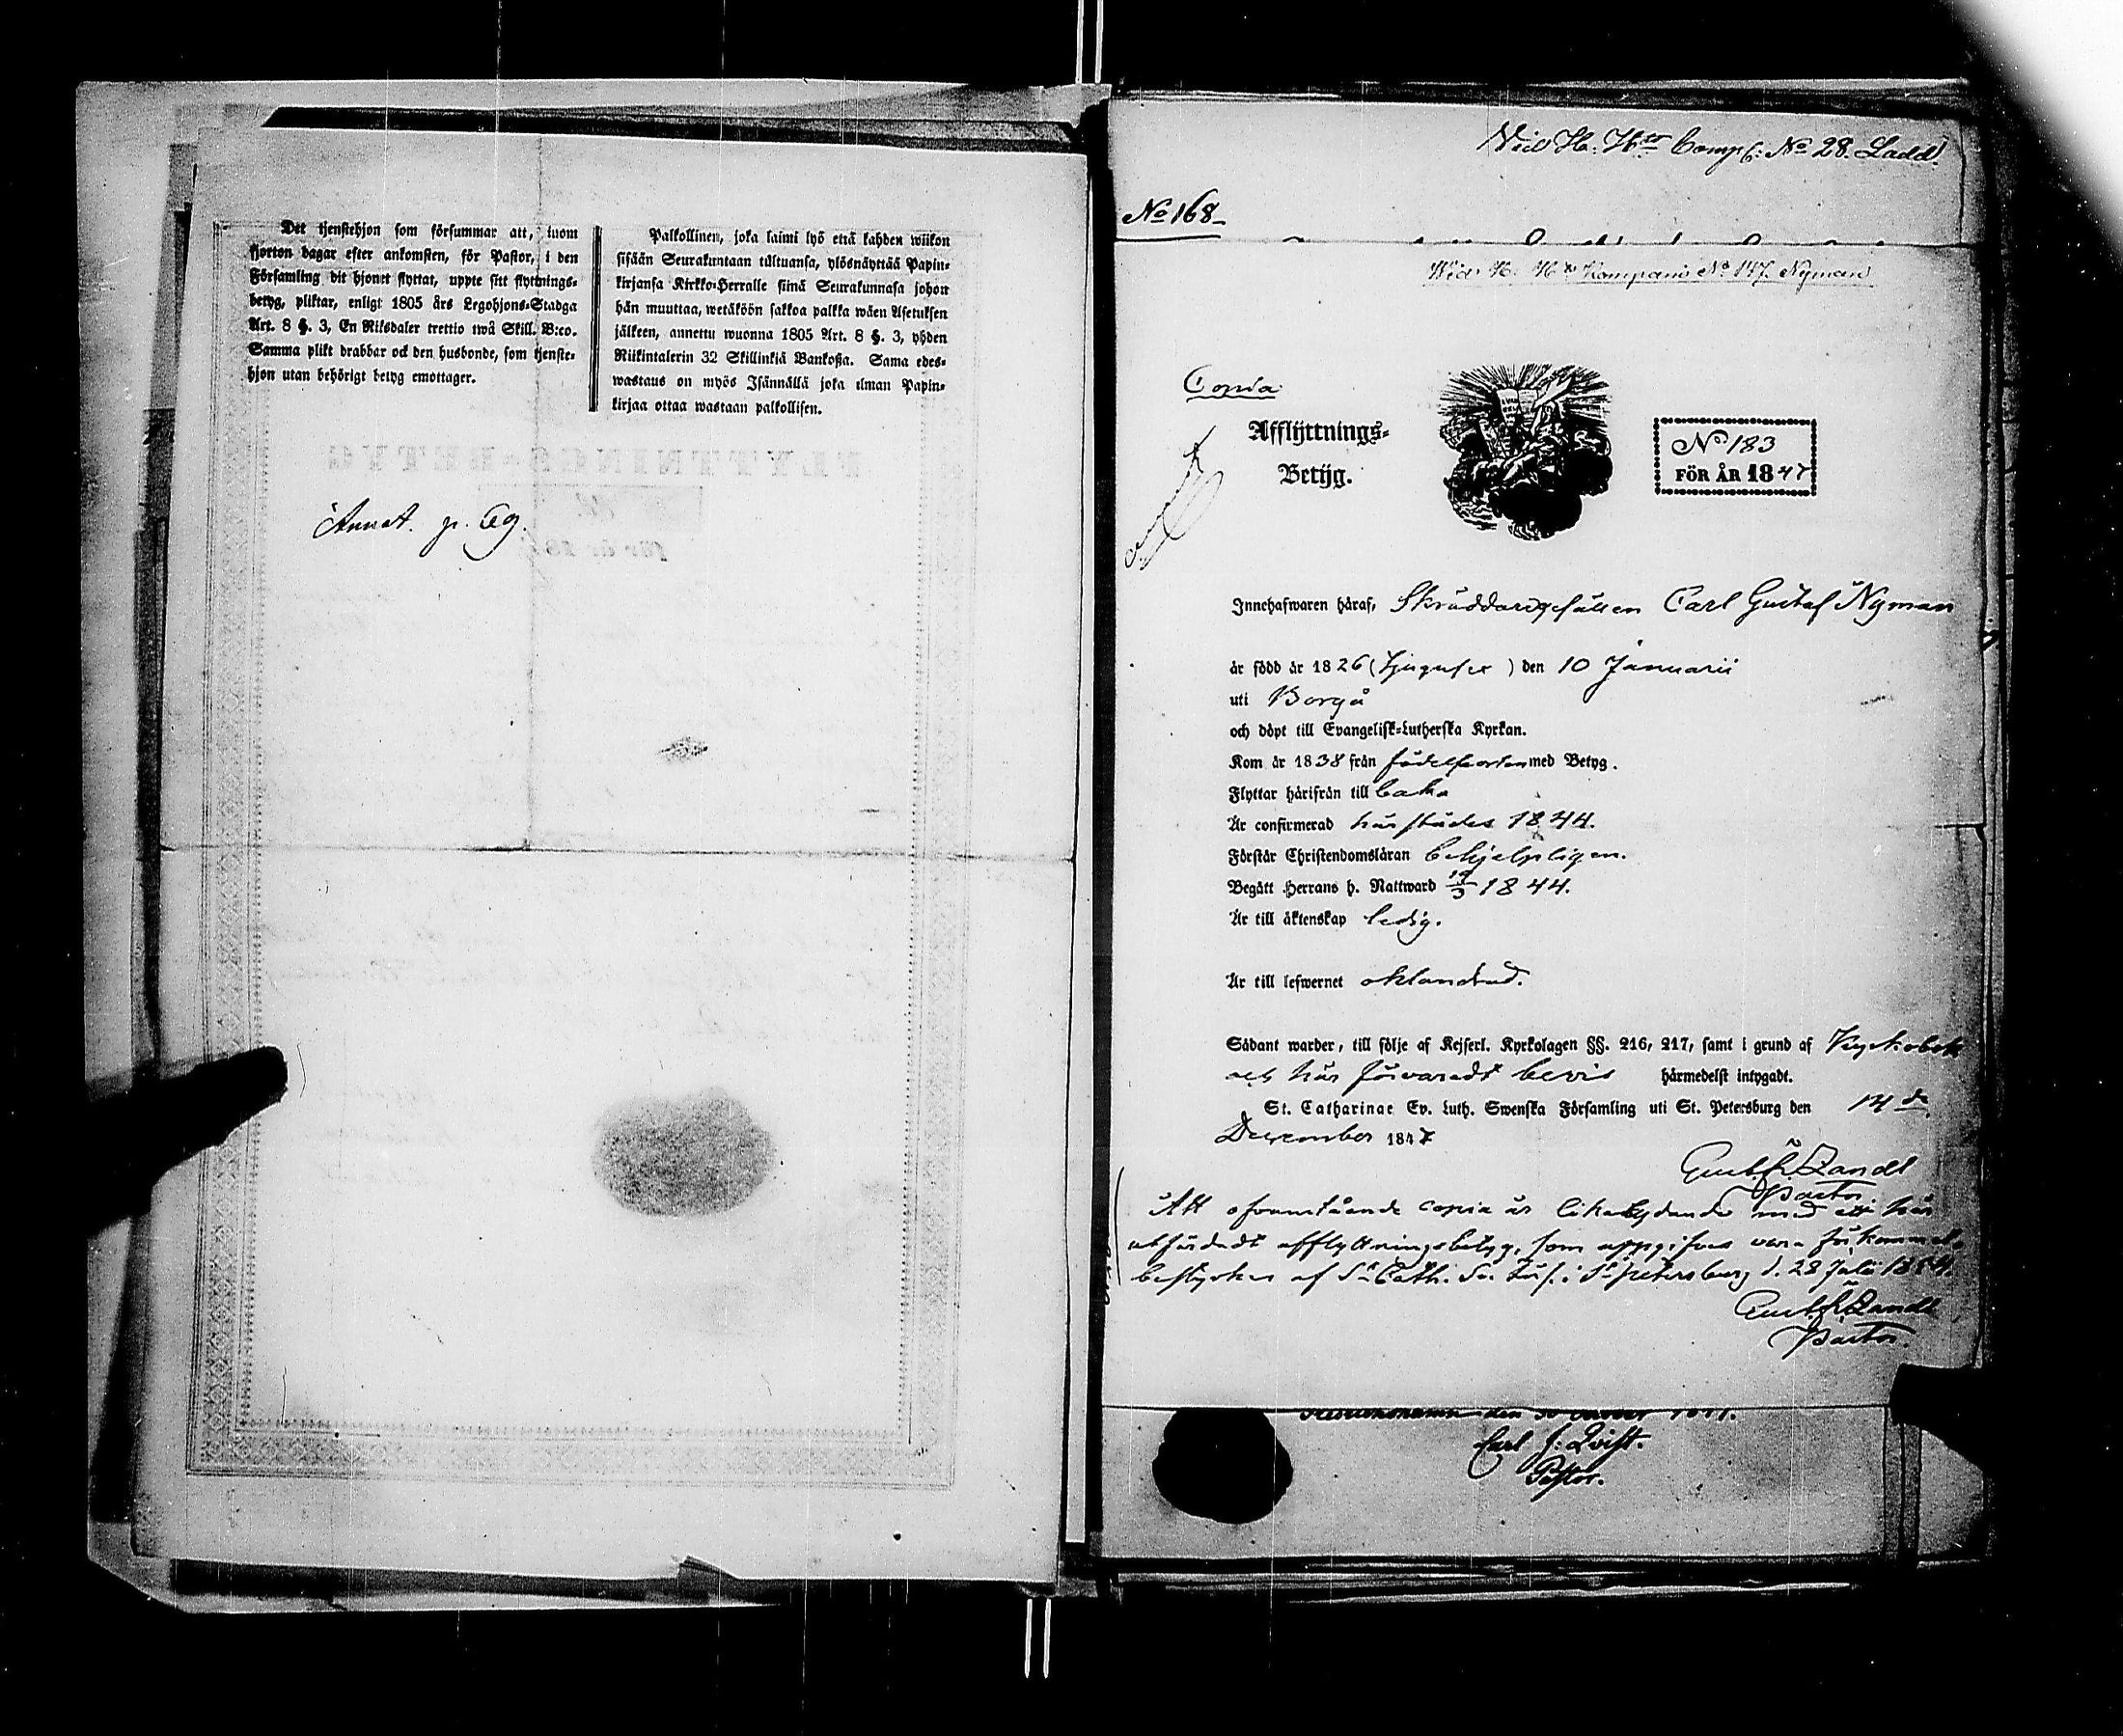 Det tjenstehjon som försummar att, inom
fjorton dagar efter ankomsten, för Pastor, i den
Församling dit hjonet flyttat, uppte sitt flyttnings-
betyg, pliktar, enligt 1805 års Legohjons-Stadga
Art. 8 §. 3, En Riksdaler trettio twå Skill. B:co.
Samma plikt drabbar ock den husbonde, som tjenste-
hjon utan behörigt betyg emottager.
Palkollinen, joka laimi lyö että kahden wiikon
sisään Seurakuntaan tultuansa, ylösnäyttää Papin-
kirjansa Kirkko-Herralle siinä Seurakunnasa johon
hän muuttaa, wetäköön sakkoa palkka wäen Asetuksen
jälkeen, annettu wuonna 1805 Art. 8 §. 3, yhden
Riikintalerin 32 Skillinkiä Bankoßa. Sama edes-
wastaus on myös Isännällä joka ilman Papin-
kirjaa ottaa wastaan palkollisen.
FLYTTNINGS-BETYG
för år 18
Annot. p.
No 28. Ladd.
No 168
Kompanie No 147. Nyman
Copia
Afflyttnings-
Betyg.
No 183
FÖR ÅR 1847
Innehafwaren häraf, Skräddaregesällen Carl Gustaf Nyman
är född år 1826 (Tjugusex) den 10 Januarii
uti Borgå
och döpt till Evangelisk-Lutherska Kyrkan.
Kom år 1838 från födelseorten med Betyg.
Flyttar härifrån till baka
Är confirmerad härstädes 1844.
Förstår Christendomsläran behjelpligen.
Begått Herrans h. Nattward 19/3 1844.
Är till äktenskap ledig.
Är till lefwernet oklandrad.
Sådant warder, till följe af Kejserl. Kyrkolagen §§. 216, 217, samt i grund af Kyrkobok
och här förvaradt bevis härmedelst intygadt.
St. Catharinae Ev. Luth. Swenska Församling uti St. Petersburg den 14 de
December 1847
Gust. Fr. Zandt
Pastor.
Att ofvanstående copia är likalydande med ett här
utfärdadt afflyttningsbetyg, som uppgifves vara förkommet,
bestyrkes af St Cath. Sv. förs. i St Petersburg d. 28 Juli
Gust. Fr. Zandt
Pastor.
den 30
Carl J: Qvist.
Pastor.